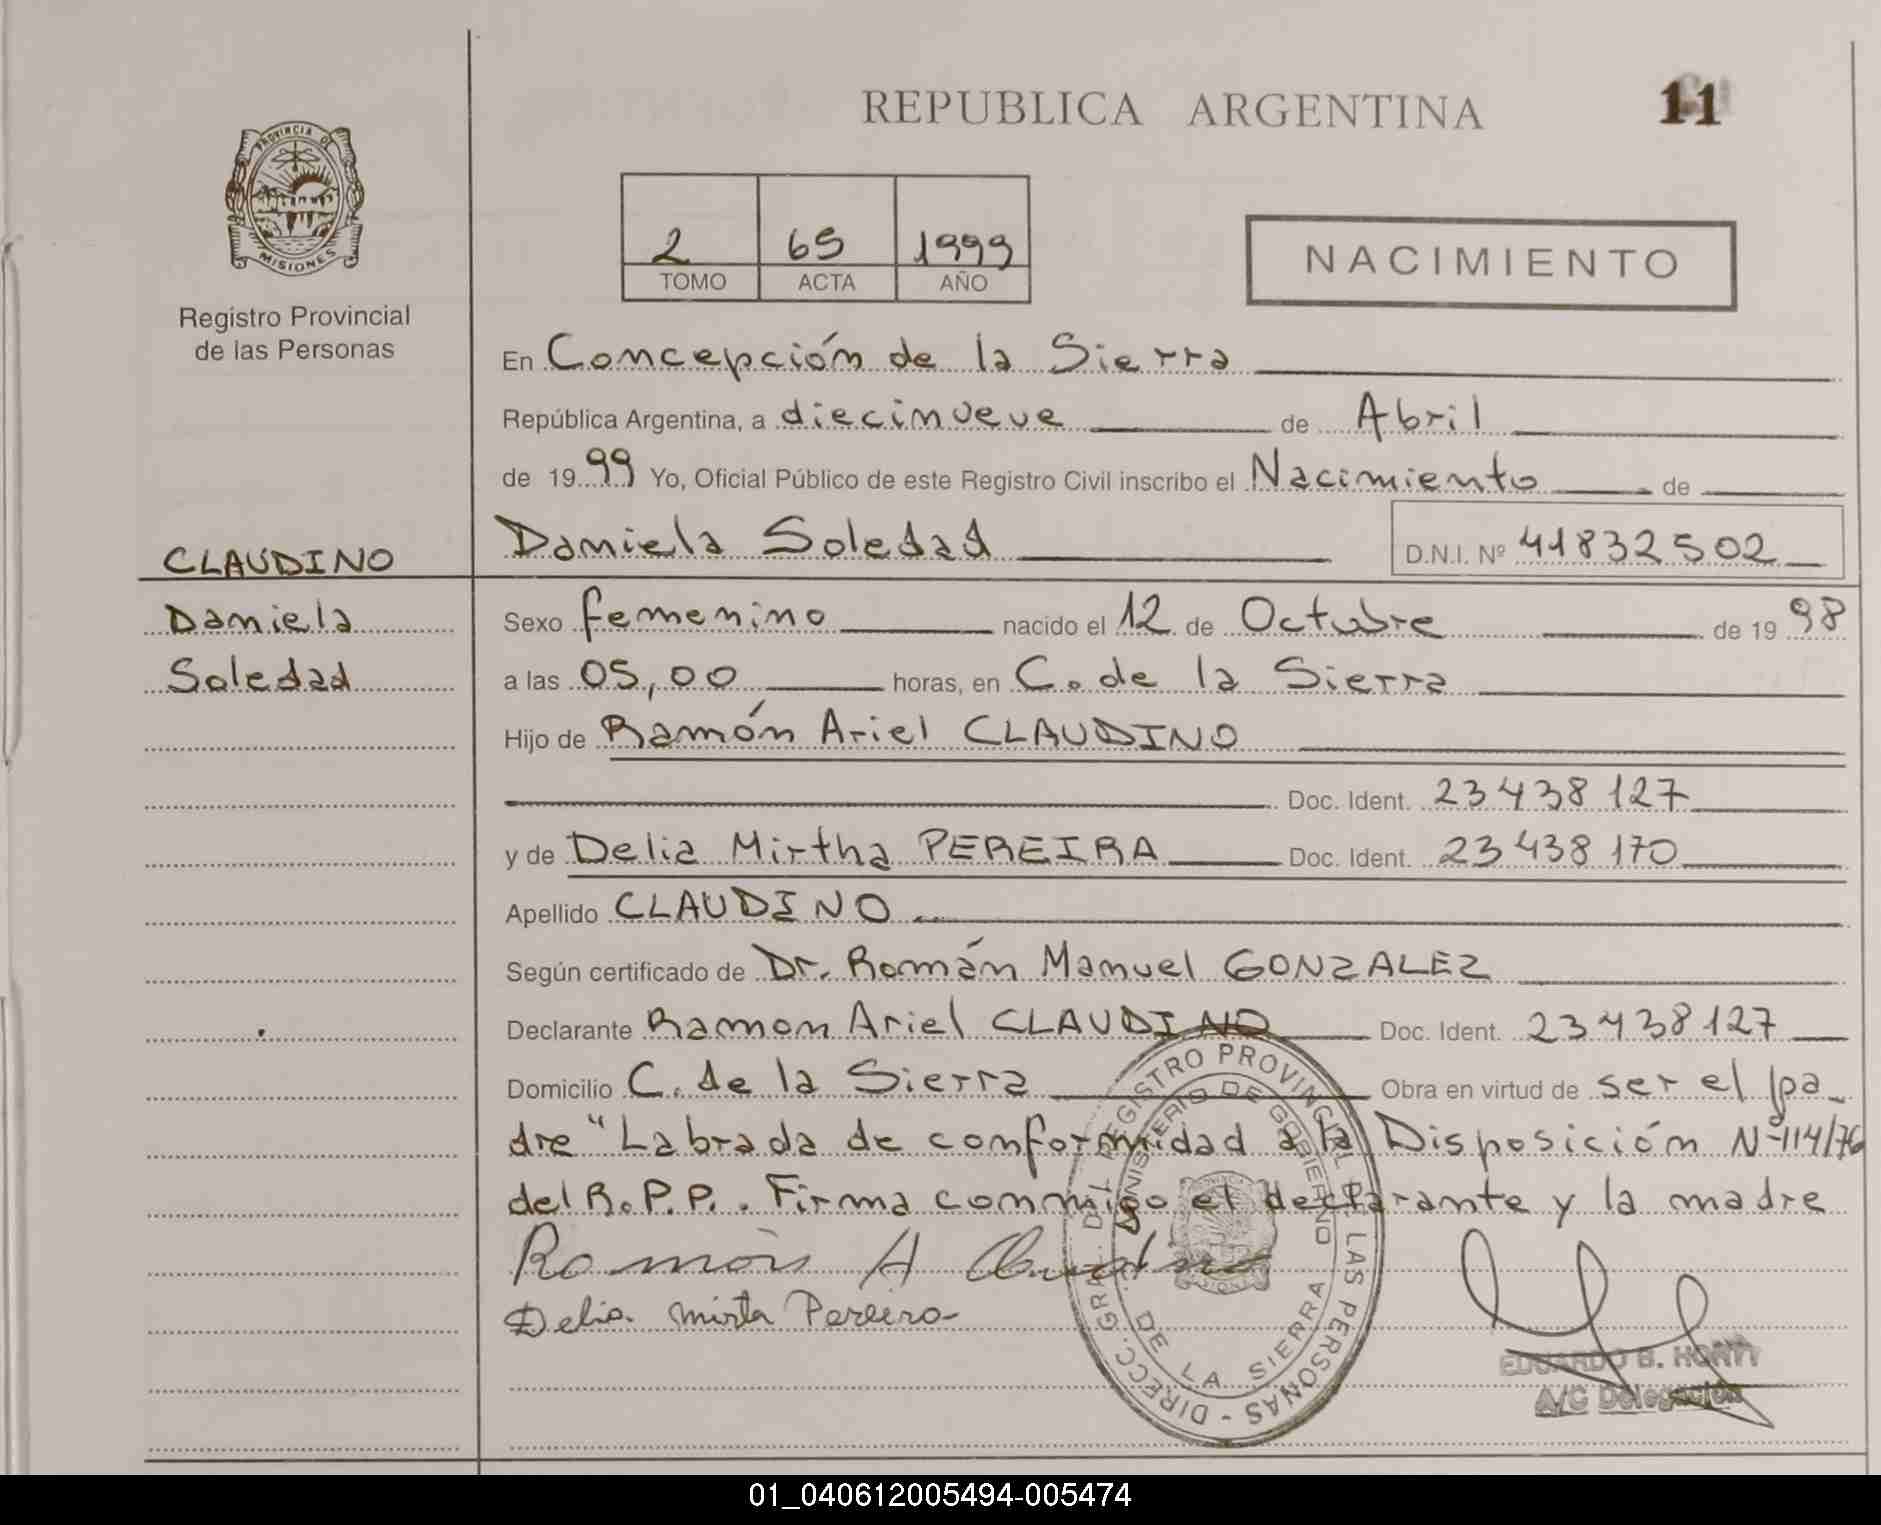 REPUBLICA ARGENTINA
11
PROVINCIA DE
MISIONES
Registro Provincial
de las Personas
2 65 1999
TOMO ACTA AÑO
NACIMIENTO
En Concepción de la Sierra
República Argentina, a diecinueve de Abril
de 1999 Yo, Oficial Público de este Registro Civil inscribo el Nacimiento de
CLAUDINO
Daniela Soledad D.N.I. Nº 41832502
Daniela
Soledad
Sexo femenino nacido el 12 de Octubre de 1998
a las 05,00 horas, en C. de la Sierra
Hijo de Ramón Ariel CLAUDINO
Doc. Ident. 23438127
y de Delia Mirtha PEREIRA Doc. Ident. 23438170
Apellido CLAUDINO
Según certificado de Dr. Román Manuel GONZALEZ
Declarante Ramon Ariel CLAUDINO Doc. Ident. 23438127
Domicilio C. de la Sierra Obra en virtud de ser el pa_
dre "Labrada de conformidad a la Disposición N-114/76
del R.P.P.. Firma conmigo el declarante y la madre
Ramón A Claudino
Delia mirta Pereira
DIRECC. GRAL. DEL REGISTRO PROVINCIAL DE LAS PERSONAS -
MINISTERIO DE GOBIERNO
DE LA SIERRA
EDUARDO B.
A/C Delegación
01_040612005494-005474